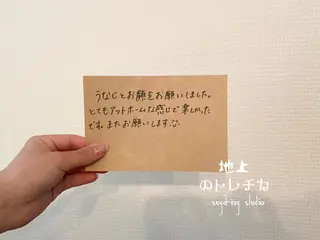 うなじとお顔をお願いしました。
とてもアットホームな感じで楽しかった
です。またお願いします
地上
のトレチカ
sugaring studio